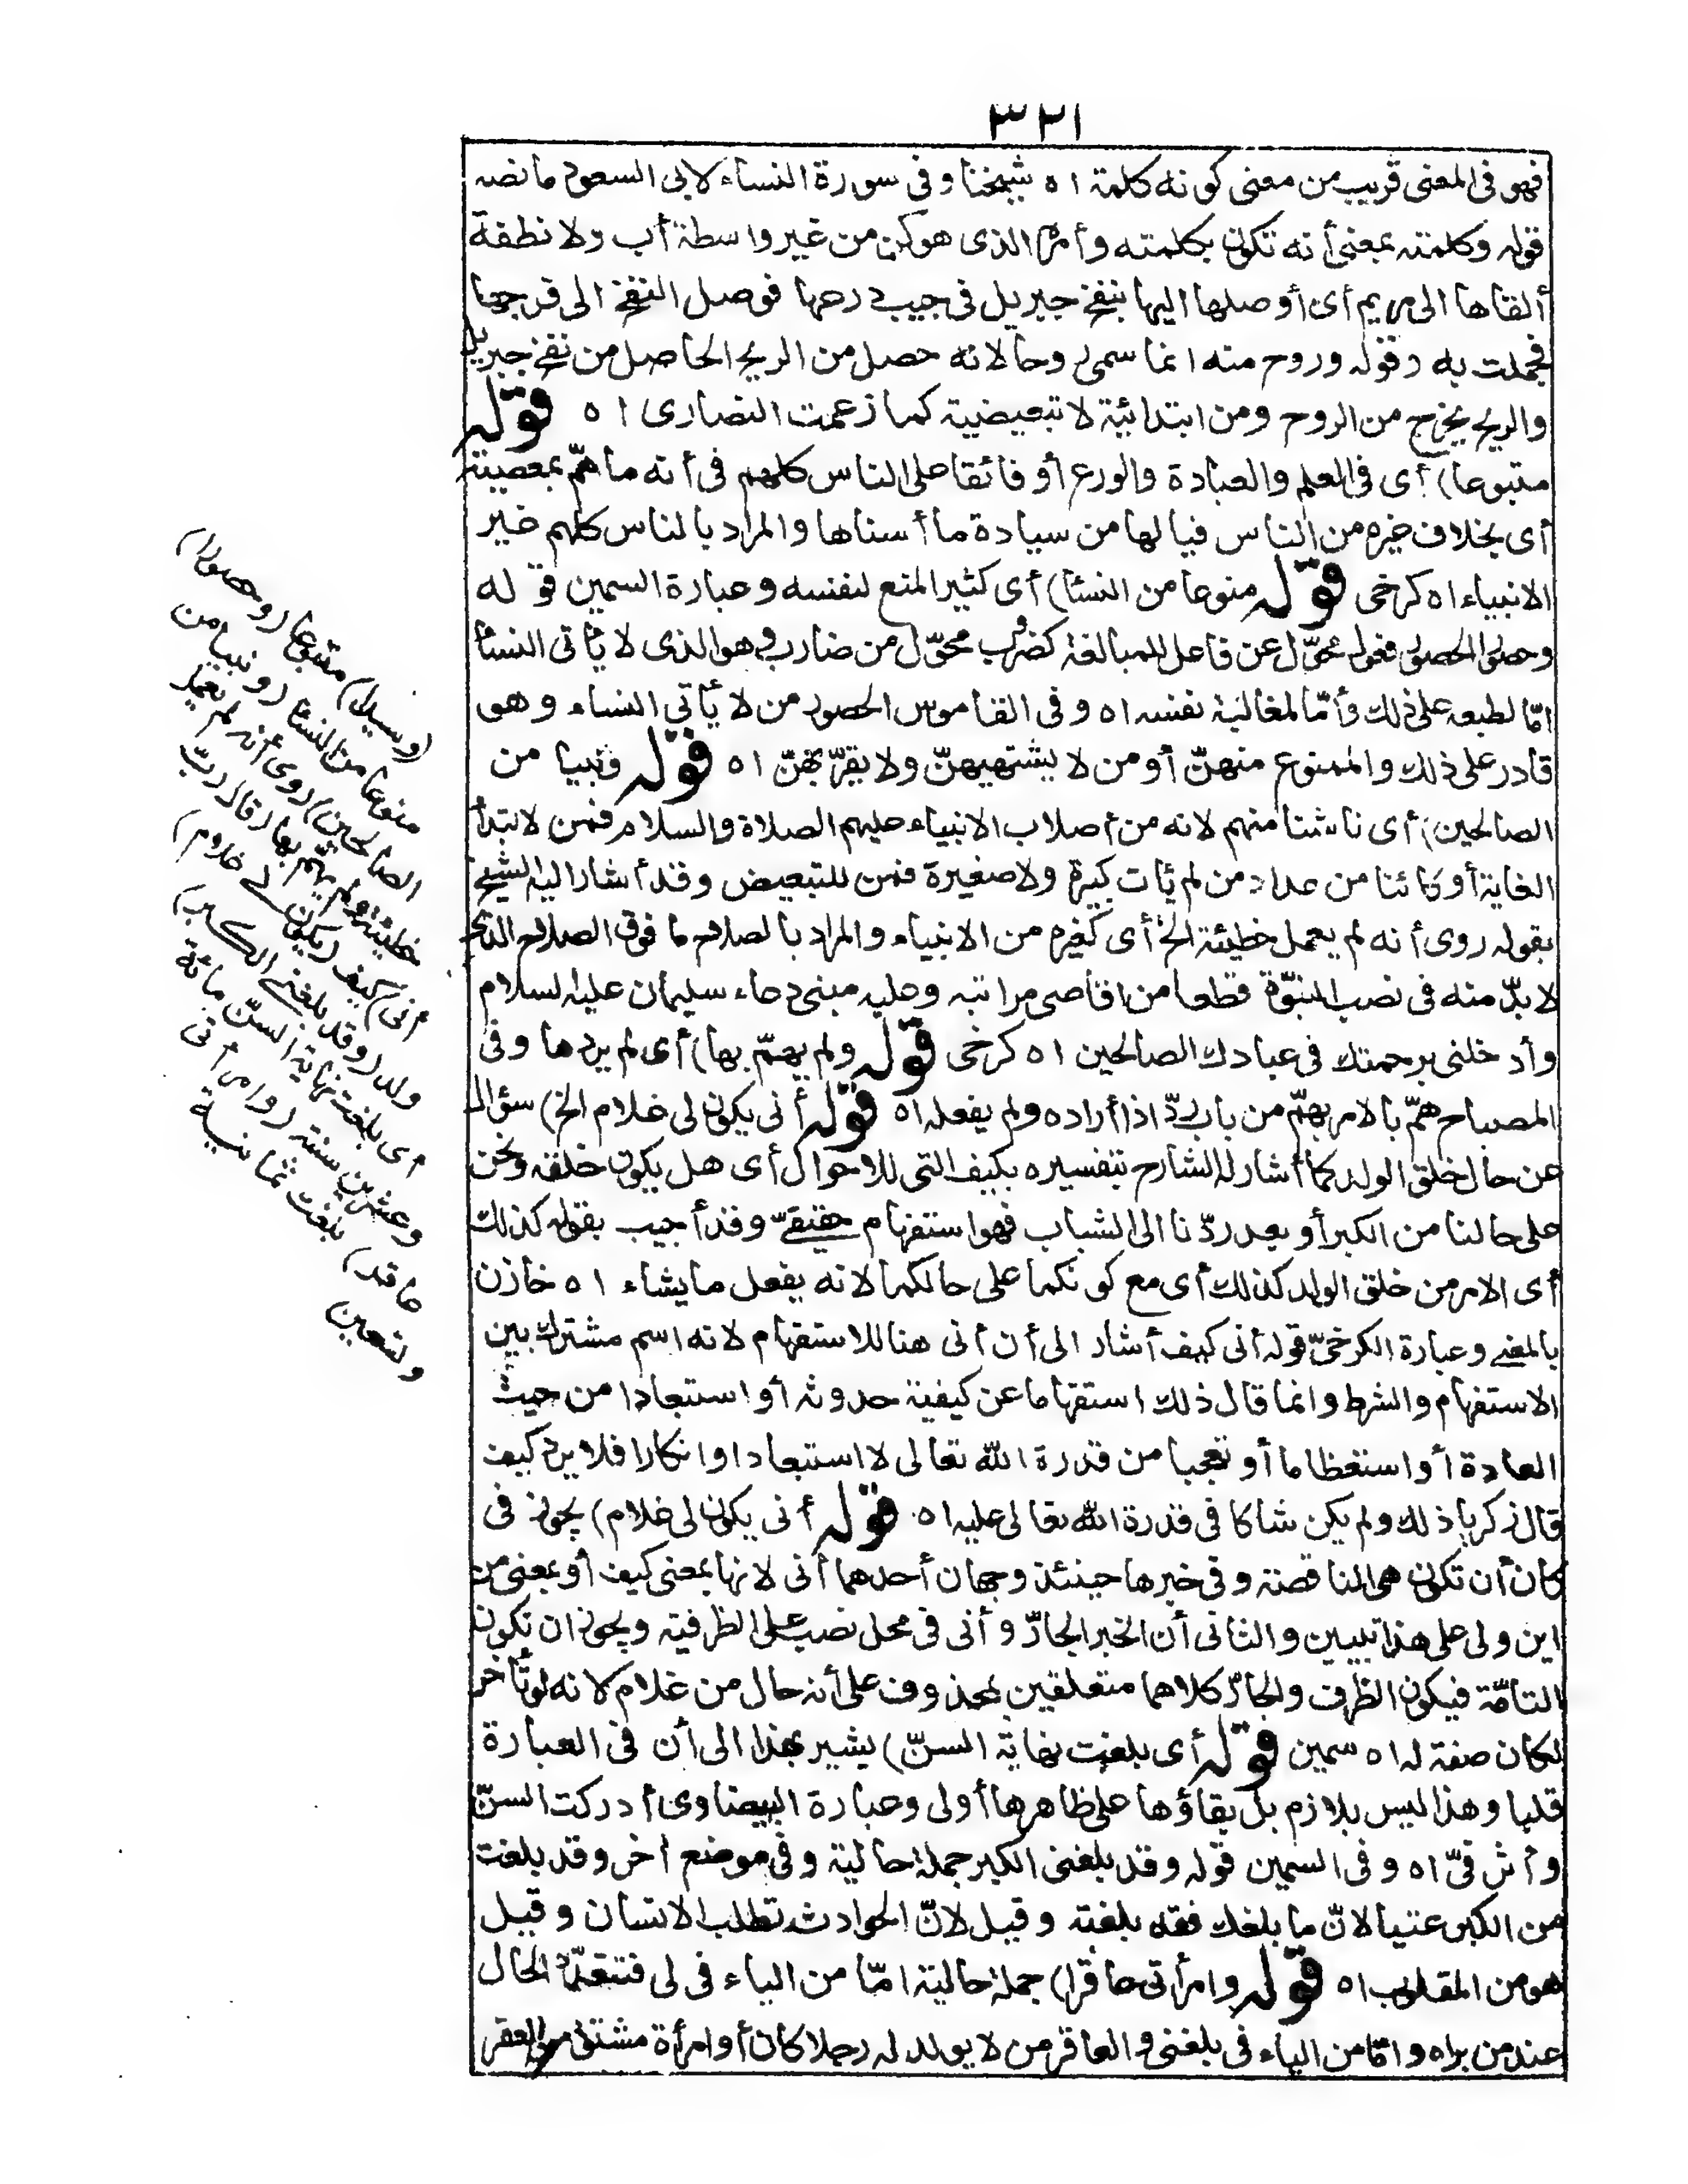 ٣٢١
فهو فى المعنى قريب من معنى كونه كلمة ا ه شيخنا وفى سورة النساء لابى السعود ما نصه
قوله وكلمته بمعنى أنه تكون بكلمته وأمره الذى هو كن من غير واسطة أب ولا نطفة
ألقاها الى مريم أى أوصلها اليها بنفخ جبريل فى جيب درعها فوصل النفخ الى فرجها
فحملت به وقوله وروح منه انما سمى روحا لانه حصل من الريح الحاصل من نفخ جبريل
والريح يخرج من الروح ومن ابتدائية لا تبعيضية كما زعمت النصارى ا ه قوله
متبوعا) أى فى العلم والعبادة والورع أو فائقا على الناس كلهم فى أنه ما همّ بمعصية
أى بخلاف غيره من الناس فيا لها من سيادة ما أسناها والمراد بالناس كلهم غير
الانبياء ا ه كرخى قوله منوعا من النساء) أى كثير المنع لنفسه وعبارة السمين قوله
وحصورا الحصور فعول محوّل عن فاعل للمبالغة كضروب محوّل من ضارب وهو الذى لا يأتى النساء
امّا لطبعه على ذلك وأمّا لمغالبة نفسه ا ه وفى القاموس الحصور من لا يأتى النساء وهو
قادر على ذلك والممنوع منهنّ أو من لا يشتهيهنّ ولا يقرّبهنّ ا ه قوله ونبيا من
الصالحين) أى ناشئا منهم لانه من أصلاب الانبياء عليهم الصلاة والسلام فمن لابتدأ
الغاية أو كائنا من عداد من لم يأت كبيرة ولا صغيرة فمن للتبعيض وقد أشار اليه الشيخ
بقوله روى أنه لم يعمل خطيئة الخ أى كغيره من الانبياء والمراد بالصلاح ما فوق الصلاح الذى
لا بدّ منه فى نصب النبوّة قطعا من اقاصى مراتبه وعليه مبنى دعاء سليمان عليه السلام
وأدخلنى برحمتك فى عبادك الصالحين ا ه كرخى قوله ولم يهمّ بها) أى لم يردها وفى
المصباح همّ بالامر يهمّ من باب ردّ اذا أراده ولم يفعله ا ه قوله أنى يكون لى غلام الخ) سؤال
عن حال خلق الولد كما أشار له الشارح بتفسيره بكيف التى للاحوال أى هل يكون خلقه ونحن
على حالنا من الكبر أو بعد ردّنا الى الشباب فهو استفهام حقيقىّ وقد أجيب بقوله كذلك
أى الامر من خلق الولد كذلك أى مع كونكما على حالكما لانه يفعل ما يشاء ا ه خازن
بالمعنى وعبارة الكرخىّ قوله أنى كيف أشار الى أن أنى هنا للاستفهام لانه اسم مشترك بين
الاستفهام والشرط وانما قال ذلك استفهاما عن كيفية حدوثه أو استبعادا من حيث
العادة أو استعظاما أو تعجبا من قدرة الله تعالى لا استبعادا وانكارا فلا يرد كيف
قال زكريا ذلك ولم يكن شاكا فى قدرة الله تعالى عليه ا ه قوله أنى يكون لى غلام) يجوز فى
كان أن تكون هى الناقصة وفى خبرها حينئذ وجهان أحدهما أنى لانها بمعنى كيف أو بمعنى من
اين ولى على هذا تبيين والثانى أن الخبر الجارّ وأنى فى محل نصب على الظرفية ويجوز ان تكون
التامّة فيكون الظرف والجارّ كلاهما متعلقين بمحذوف على أنه حال من غلام لانه لو تأخر
لكان صفة له ا ه سمين قوله أى بلغت نهاية السنّ) يشير بهذا الى أن فى العبارة
قلبا وهذا ليس بلازم بل بقاؤها على ظاهرها أولى وعبارة البيضاوى أدركت السنّ
وأثر فىّ ا ه وفى السمين قوله وقد بلغنى الكبر جملة حالية وفى موضع أخر وقد بلغت
من الكبر عتيا لانّ ما بلغك فقد بلغته وقيل لانّ الحوادث تطلب الانسان وقيل
هو من المقلوب ا ه قوله وامرأتى عاقرا) جملة حالية امّا من الياء فى لى فتتعدّد الحال
عند من يراه وامّا من الياء فى بلغنى والعاقر من لا يولد له رجلا كان أو امرأة مشتق من العقر
(وسيدا) متبوعا (وحصورا)
منوعا من النساء (ونبيا من
الصالحين) روى أنه لم يعمل
خطيئة ولم يهمّ بها (قال رب
أنى) كيف (يكون لى غلام)
ولد (وقد بلغنى الكبر)
أى بلغت نهاية السنّ مائة
وعشرين سنة (وامرأتى
عاقر) بلغت ثمانية
وتسعين